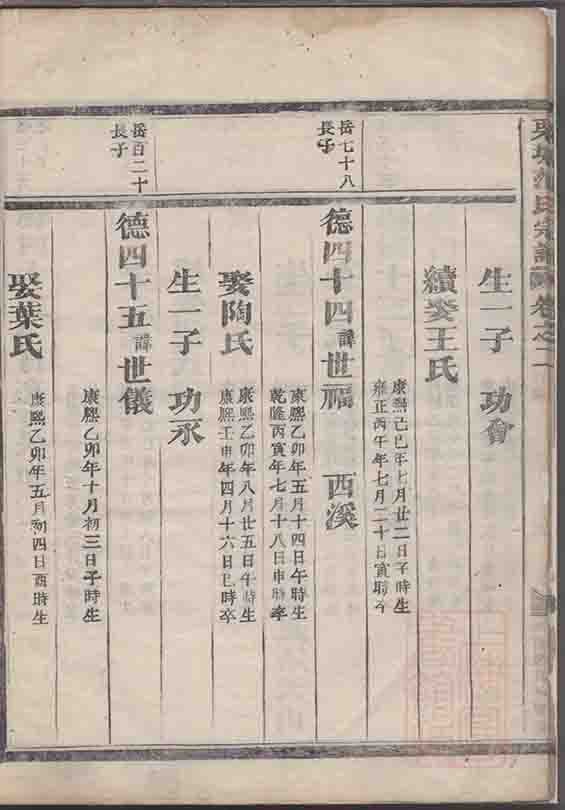 氏宗譜 卷之二
生一子 功會
續娶王氏
康熙己巳年七月廿二日子時生
雍正丙午年七月二十日寅時卒
岳七十八
長子
德四十四諱世福 西溪
康熙乙卯年五月十四日午時生
乾隆丙寅年七月十八日申時卒
娶陶氏
康熙乙卯年八月廿五日午時生
康熙壬申年四月十六日巳時卒
生一子 功永
岳百二十
長子
德四十五諱世儀
康熙乙卯年十月初三日子時生
娶葉氏
康熙乙卯年五月初四日酉時生